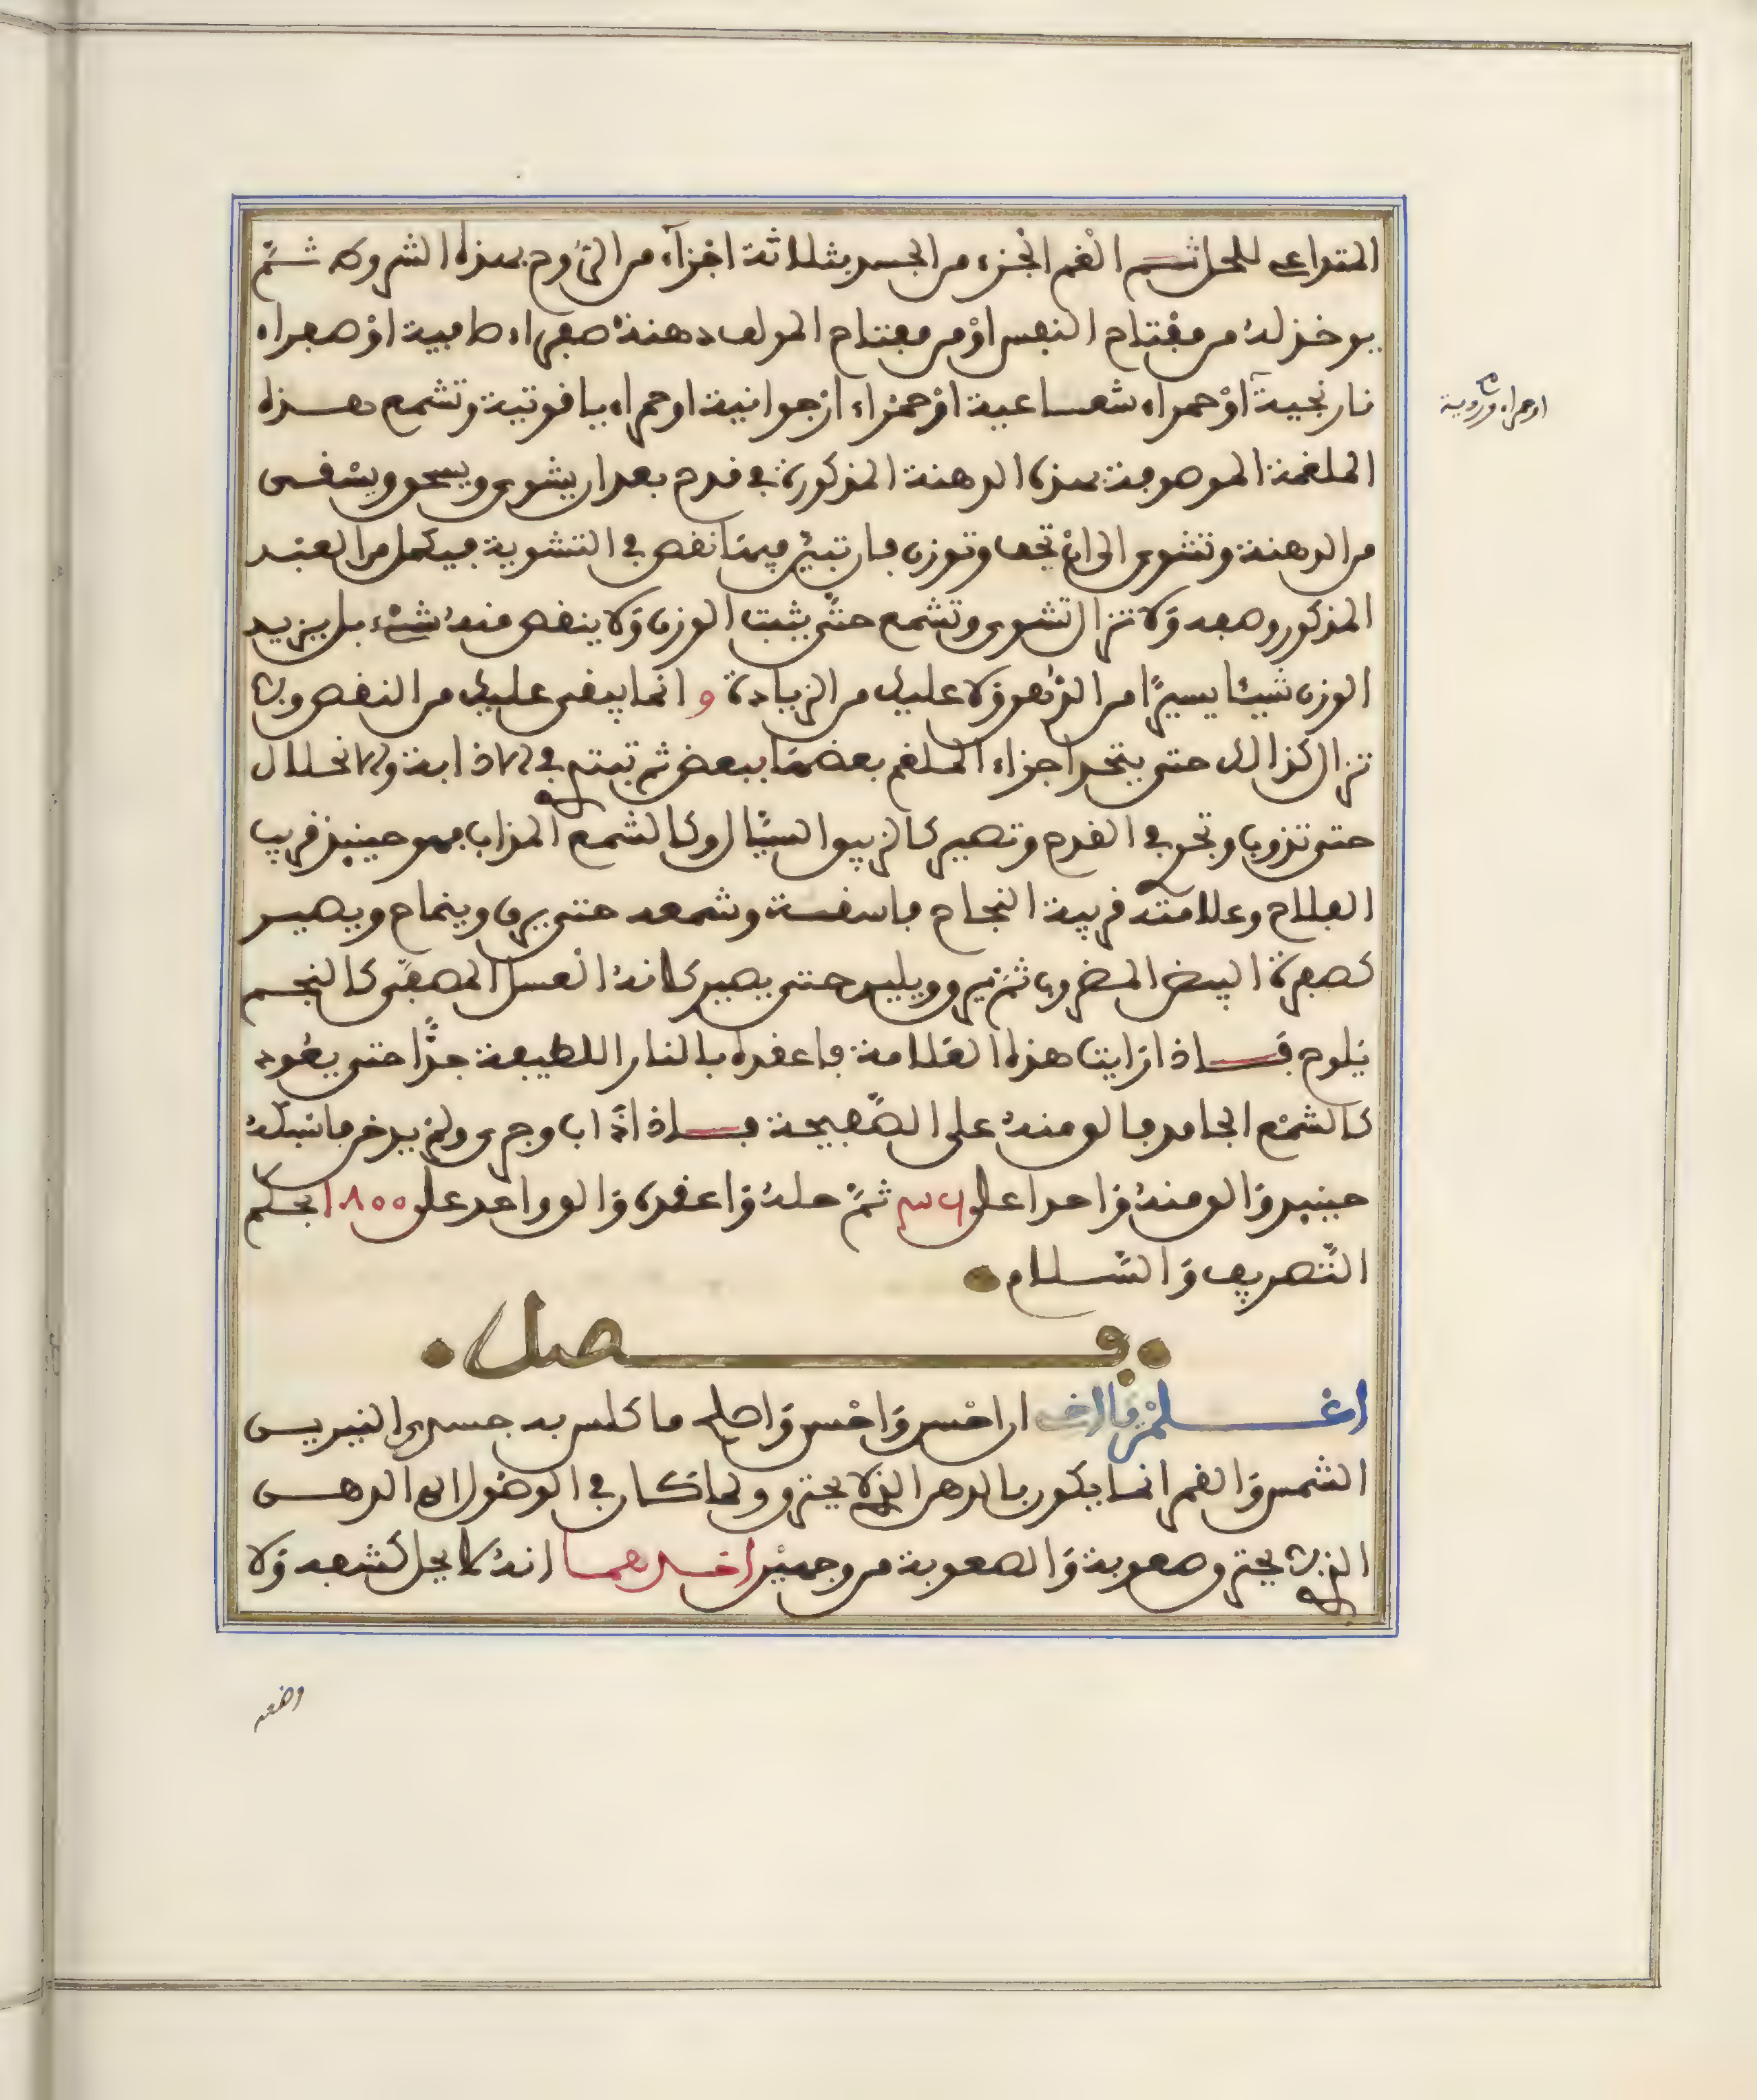 المتداعي للحل ثم الغم الجزء من الجسد بثلاثة اجزآء من الرّوح بهذه الشروط ثمّ
يوخذ له من مفتاح النفس اوْ من مفتاح المولف دهنة صفراء صافية اوْ صفراء
نارنجية اوْ حمراء شعاعية اوْ حمراء ارْجوانية او حمراء ياقوتية وتشمع هذه
او حمراء وردية صح
الملغمة الموصوفة بهذه الدهنة المذكورة في قدح بعد ان يشوى ويسحق ويسقى
من الدهنة وتشوى الى انْ تجف وتوزن فان تبيّن فيها نقص في التشوية فيكمل من العبد
المذكور وصفه وَلا تزال تشوى وتشمع حتّى يثبت الوزن وَلا ينقص منهُ شىْء بل يزيد
الوزن شيئا يسيرًا من الدّهن وَلا عليك من الزيادة و انما يبقى عليك من النقص ولا
تزال كذالك حتى يتحد اجزاء الملغم بعضهَا ببعض ثم تبتهي في الاذابة والانحلال
حتى تذوب وتجري في القدح وتصير كالزيبق السيّال او كالشمع المذاب فهو حينيذ قريب
الفلاح وعلامته قريبة النجاح فاسقه وشمعه حتى يرق وينماع ويصير
كصفرة البيض المضروب ثمّ يرق ويلين حتى يصير كانهُ العسل المصفّى كالنجم
يَلوح فاذا رَايت هذه العَلامة فاعقده بالنار اللطيفة جدًّا حتى يعُود
كالشمْع الجامد فالق منهُ على الصّفيحة فاذا ذَاب وجرى ولمْ يدخن فاسْبكهُ
حينيذ وَالق منهُ وَاحدا على ثمّ حلهُ وَاعقده وَالق واحد على ١٨٠٠ بحكم
التّصريف وَالسّلام
فصل
اعْلمْ يا اخي ان اخْس وَاحْسن وَاصلح ما كلس به جسدى النيرين
الشمس وَالقمر انما يكون بالدهن الذي لا يحترق ولما كان في الوصُول الى الدهن
الذي لا يحترق صعوبة وَالصعوبة من وجهيْن احدهما انهُ لا يحل كشفه وَلا
وضعه